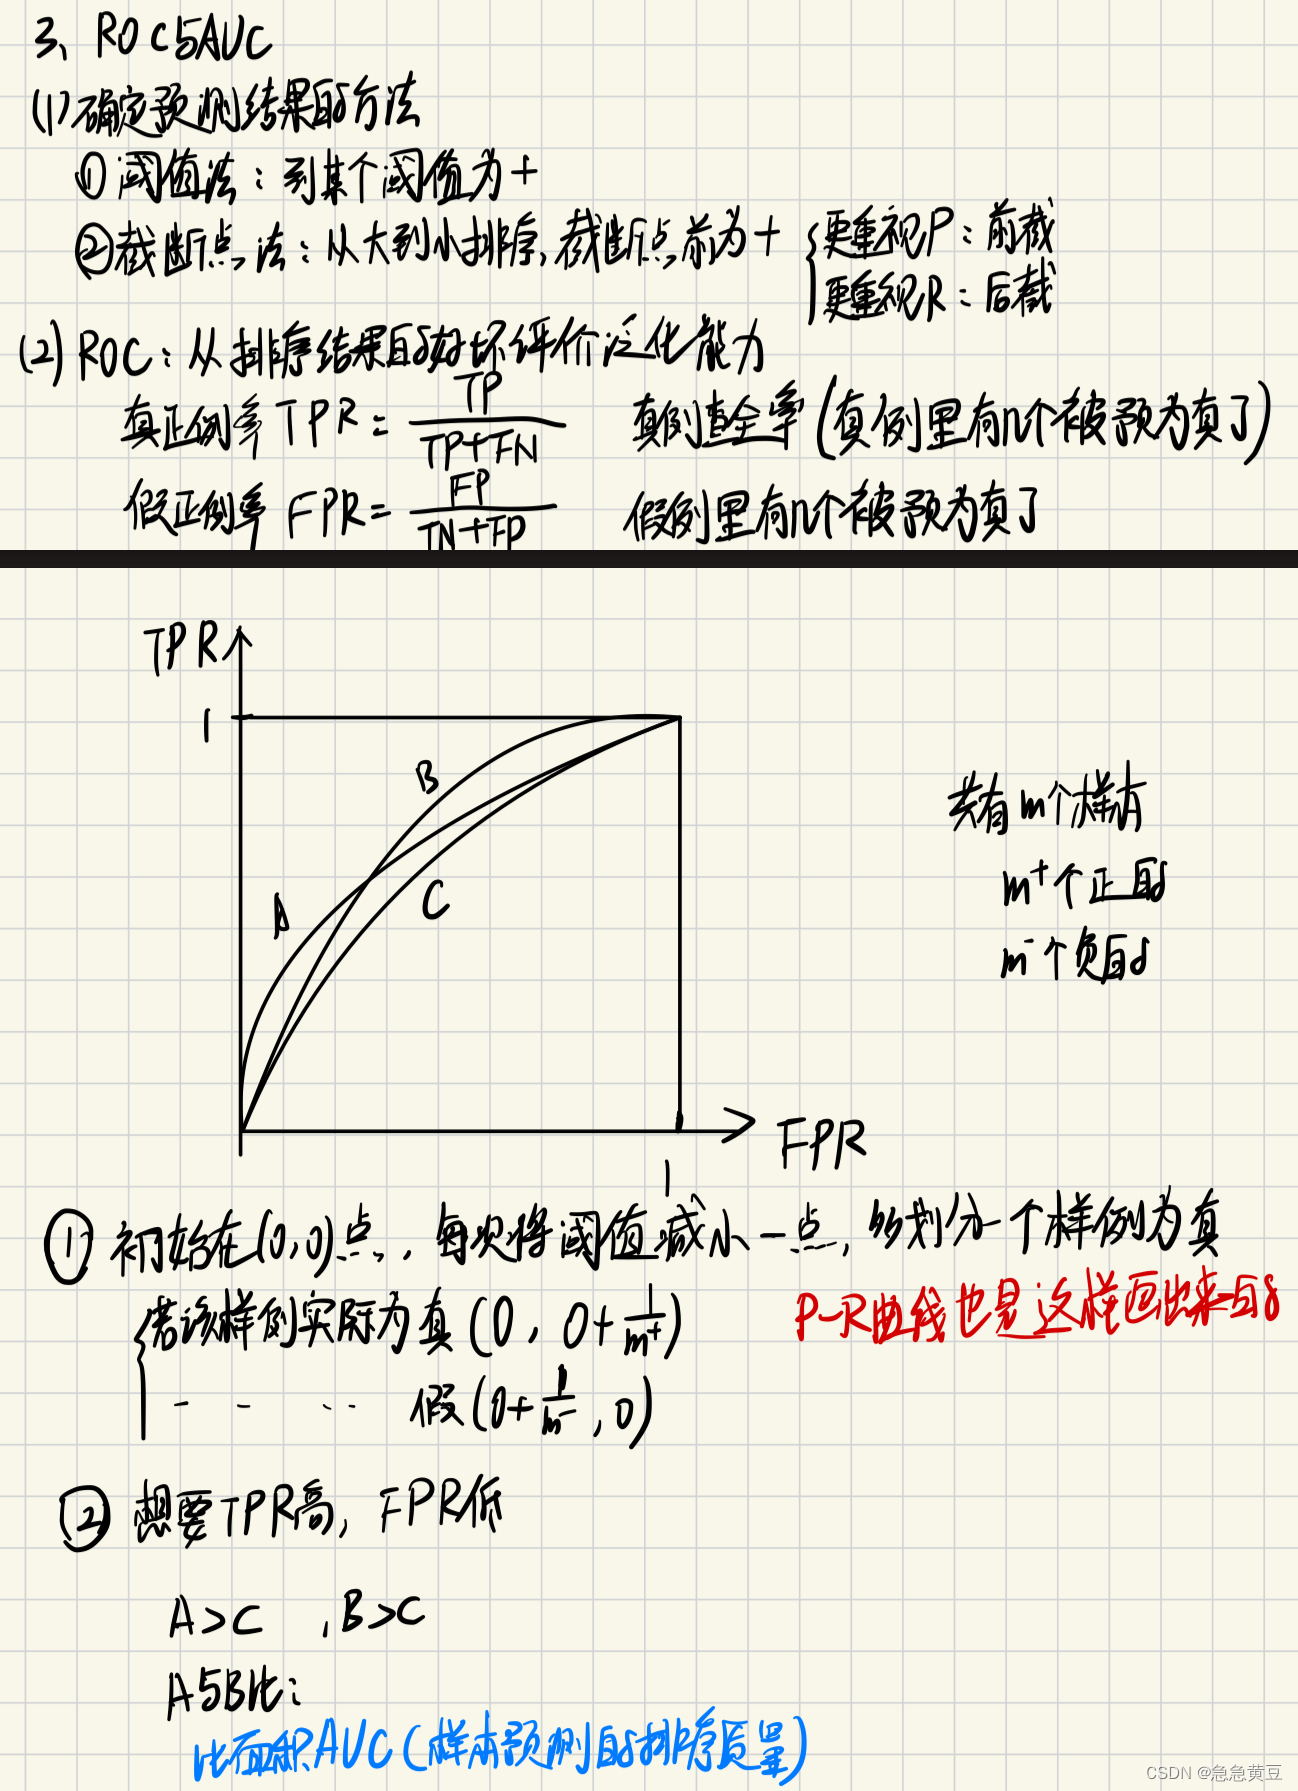 3、ROC与AUC
(1)确定预测结果的方法
①阈值法：到某个阈值为+
②截断点法：从大到小排序，截断点前为+ 更重视P：前截
更重视R：后截
(2) ROC：从排序结果的好坏评价泛化能力
真正例率 TPR = TP/(TP+FN) 真例查全率(真例里有几个被预为真了)
假正例率 FPR = FP/(TN+FP) 假例里有几个被预为真了
TPR
1
B
A
C
共有m个样本
m⁺个正的
m⁻个负的
FPR
1
① 初始在(0,0)点，每次将阈值减小一点，多划分一个样例为真
若该样例实际为真 (0, 0+1/m⁺) P-R曲线也是这样画出来的
- - - - 假 (0+1/m⁻, 0)
② 想要TPR高，FPR低
A>C , B>C
A与B比：
比面积AUC(样本预测的排序质量)
CSDN @急急黄豆